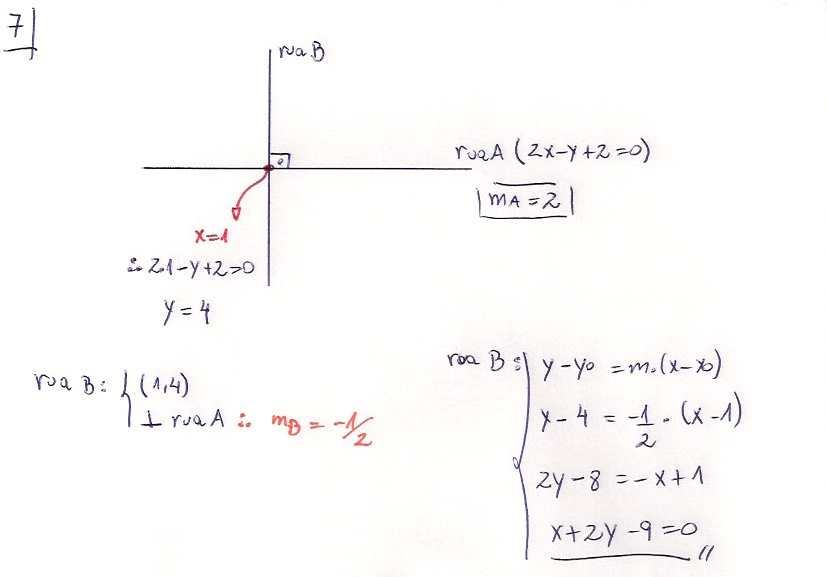 7
rua B
rua A (2x-y+2=0)
mA = 2
x=1
∴ 2.1-y+2=0
y = 4
rua B: { (1,4)
⊥ rua A ∴ mB = -1/2
rua B: y-yo = m.(x-xo)
y-4 = -1/2 . (x-1)
2y-8 = -x+1
x+2y-9=0 //